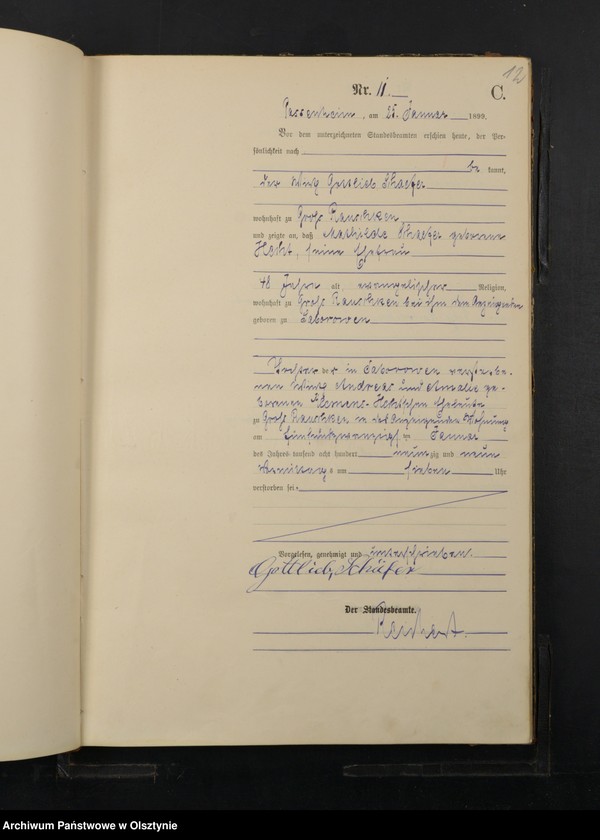 12
Nr. 11.
C.
Passenheim, am 25. Januar 1899.
Vor dem unterzeichneten Standesbeamten erschien heute, der Per-
sönlichkeit nach
be kannt,
der Wirth Gottlieb Schaefer
wohnhaft zu Groß Rauschken
und zeigte an, daß Mathilde Schaefer geborene
Hecht, seine Ehefrau
48 Jahre alt, evangelischer Religion,
wohnhaft zu Groß Rauschken bei ihm dem Anzeigenden
geboren zu Saborowen
Tochter der in Saborowen verstorbe-
nen Wirth Andreas und Amalie ge-
borenen Hechtschen Eheleute
zu Groß Rauschken in des Anzeigenden Wohnung
am fünfundzwanzigsten Januar
des Jahres tausend acht hundert neunzig und neun
Vormittags um sieben Uhr
verstorben sei.
Vorgelesen, genehmigt und unterschrieben.
Gottlieb Schäfer
Der Standesbeamte.